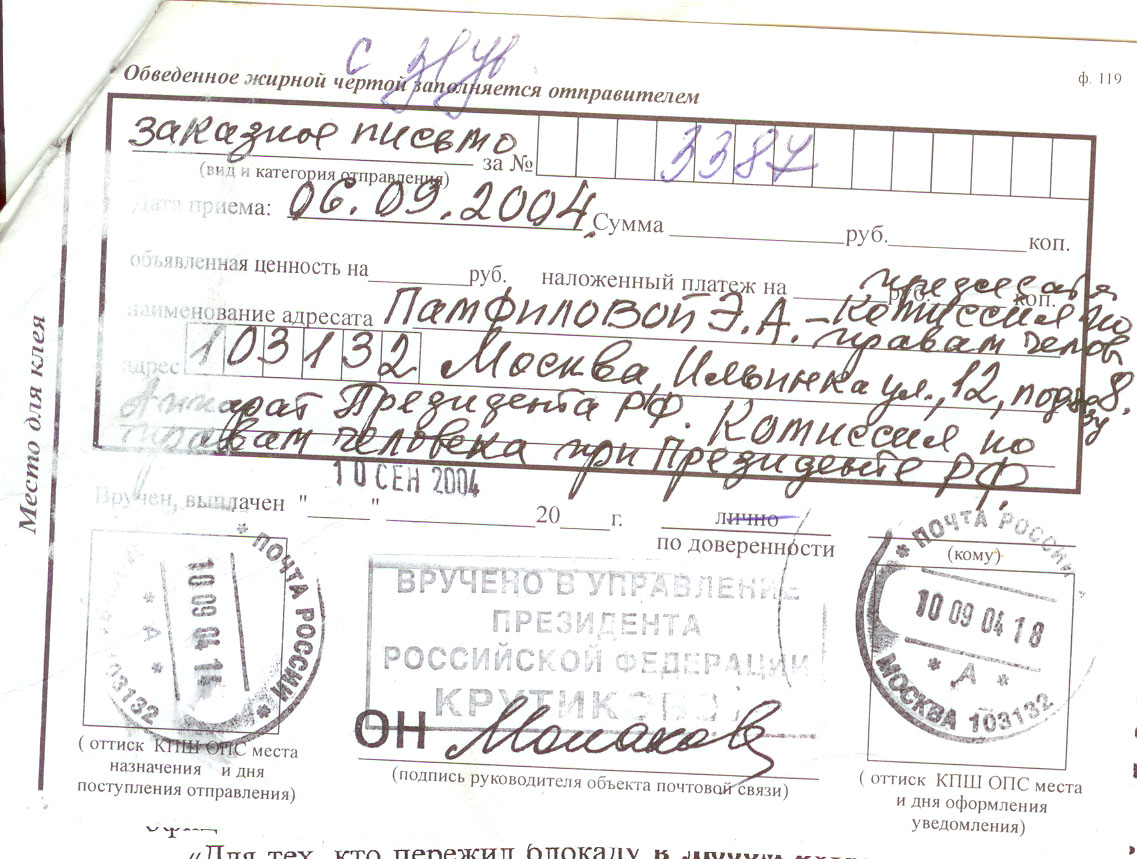 с
ф. 119
Обведенное жирной чертой заполняется отправителем
заказное письмо за № 3387
(вид и категория отправления)
Дата приема: 06.09.2004. Сумма руб. коп.
объявленная ценность на руб. наложенный платеж на руб. коп.
председателя
наименование адресата Памфиловой Э.А. – Комиссия по
правам челов
адрес 103132 Москва, Ильинка ул., 12, подъезд 8.
Аппарат Президента РФ. Комиссия по
правам человека при Президенте РФ.
10 СЕН 2004
Вручен, выплачен " " 20 г. лично
по доверенности
(кому)
Место для клея
* ПОЧТА РОССИИ *
10 09 04
* А *
103132
ВРУЧЕНО В УПРАВЛЕНИЕ
ПРЕЗИДЕНТА
РОССИЙСКОЙ ФЕДЕРАЦИИ
ОН
(подпись руководителя объекта почтовой связи)
* ПОЧТА РОССИИ
10 09 04 18
* А *
МОСКВА 103132
( оттиск КПШ ОПС места
назначения и дня
поступления отправления)
( оттиск КПШ ОПС места
и дня оформления
уведомления)
«Для тех, кто пережил блокаду в